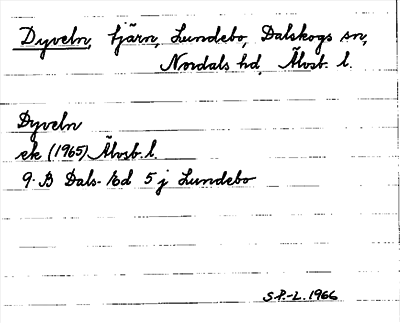 Dyveln, tjärn, Lundebo, Dalskogs sn,
Nordals hd, Älvsb. l.
Dyveln
ek (1965) Älvsb. l.
9 B Dals-Ed 5 j Lundebo
S P.-L. 1966